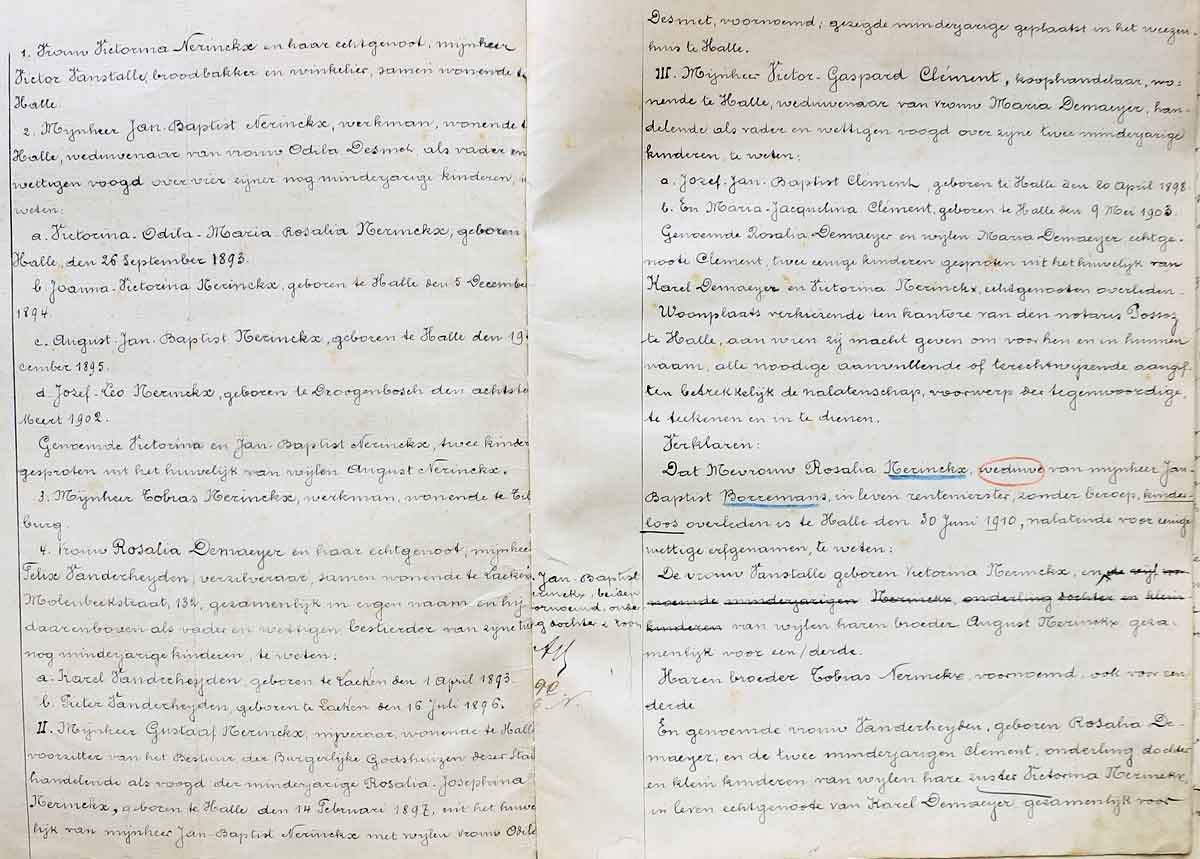 1. Vrouw Victorina Nerinckx en haar echtgenoot, mijnheer
Victor Vanstalle, broodbakker en winkelier, samen wonende te
Halle.
2. Mijnheer Jan-Baptist Nerinckx, werkman, wonende t
Halle, weduwenaar van vrouw Odila Desmet als vader en
wettigen voogd over vier zijner nog minderjarige kinderen,
weten:
a. Victorina-Odila-Maria-Rosalia Nerinckx, geboren
Halle, den 26 September 1893.
b. Joanna-Victorina Nerinckx, geboren te Halle den 5 December
1894.
c. August-Jan-Baptist Nerinckx, geboren te Halle den 19
cember 1895.
d. Josef-Leo Nerinckx, geboren te Droogenbosch den achtste
Meert 1902.
Genoemde Victorina en Jan-Baptist Nerinckx, twee kinder
gesproten uit het huwelijk van wijlen August Nerinckx.
3. Mijnheer Tobias Nerinckx, werkman, wonende te Til
burg.
4. Vrouw Rosalia Demaeyer en haar echtgenoot, mijnheer
Felix Vanderheyden, verzilveraar, samen wonende te Laeken
Molenbeekstraat, 132, gezamenlijk in eigen naam en hij
daarenboven als vader en wettigen bestierder van zijne twee
nog minderjarige kinderen, te weten:
a. Karel Vanderheyden, geboren te Laeken den 1 April 1893.
b. Pieter Vanderheyden, geboren te Laeken den 16 Juli 1896.
II. Mijnheer Gustaaf Nerinckx, nijveraar, wonende te Hall
voorzitter van het Bestuur der Burgerlijke Godshuizen dezer Stad
handelende als voogd der minderjarige Rosalia-Josephina
Nerinckx, geboren te Halle den 14 Februari 1897, uit het huwe
lijk van mijnheer Jan-Baptist Nerinckx met wijlen vrouw Odila
Jan-Baptist
erinckx, beiden
ornoemd, onder
g dochter & zoon
N.
Desmet, voornoemd; gezegde minderjarige geplaatst in het weezen-
huis te Halle.
III. Mijnheer Victor-Gaspard Clément, koophandelaar, wo-
nende te Halle, weduwenaar van vrouw Maria Demaeyer, han-
delende als vader en wettigen voogd over zijne twee minderjarige
kinderen, te weten:
a. Jozef-Jan-Baptist Clément, geboren te Halle den 20 April 1898.
b. En Maria-Jacquelina Clément, geboren te Halle den 9 Mei 1903.
Genoemde Rosalia Demaeyer en wijlen Maria Demaeyer echtge-
noote Clement, twee eenige kinderen gesproten uit het huwelijk van
Karel Demaeyer en Victorina Nerinckx, echtgenooten overleden.
Woonplaats verkiezende ten kantore van den notaris Possoz
te Halle, aan wien zij macht geven om voor hen en in hunnen
naam, alle noodige aanvullende of terechtwijzende aangif-
ten betrekkelijk de nalatenschap, voorwerp der tegenwoordige,
te teekenen en in te dienen.
Verklaren:
Dat Mevrouw Rosalia Nerinckx, weduwe van mijnheer Jan-
Baptist Borremans, in leven rentenierster, zonder beroep, kinder-
loos overleden is te Halle den 30 Juni 1910, nalatende voor eenige
wettige erfgenamen, te weten:
De vrouw Vanstalle geboren Victorina Nerinckx, en de vijf vo
noemde minderjarigen Nerinckx, onderling dochter en klein
kinderen van wijlen haren broeder August Nerinckx geza-
menlijk voor een/derde.
Haren broeder Tobias Nerinckx, voornoemd, ook voor een
derde
En genoemde vrouw Vanderheyden, geboren Rosalia De-
maeyer, en de twee minderjarigen Clement, onderling dochter
en klein kinderen van wijlen hare zuster Victorina Nerinckx
in leven echtgenoote van Karel Demaeyer gezamenlijk voor